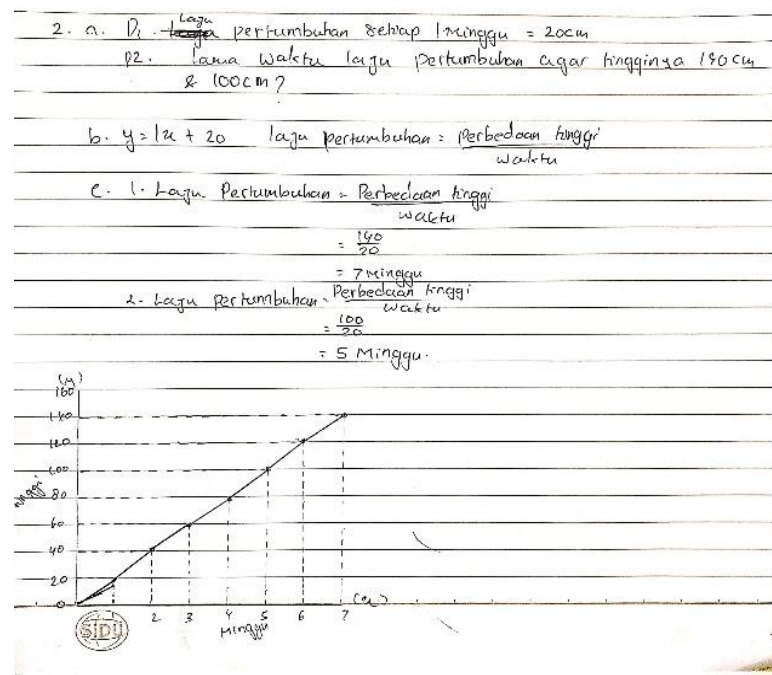 2. a. D1. Laju pertumbuhan setiap 1 minggu = 20cm
P2. Lama waktu laju pertumbuhan agar tingginya 140 cm
& 100cm?
b. y = 1x + 20 laju pertumbuhan = Perbedaan tinggi
waktu
c. 1. Laju Pertumbuhan = Perbedaan tinggi
waktu
= 140
20
= 7 minggu
2. Laju pertumbuhan = Perbedaan tinggi
waktu
= 100
20
= 5 Minggu.
(y)
160
140
120
100
80
60
40
20
0
tinggi
2 3 4 5 6 7 (x)
Minggu
SIDU